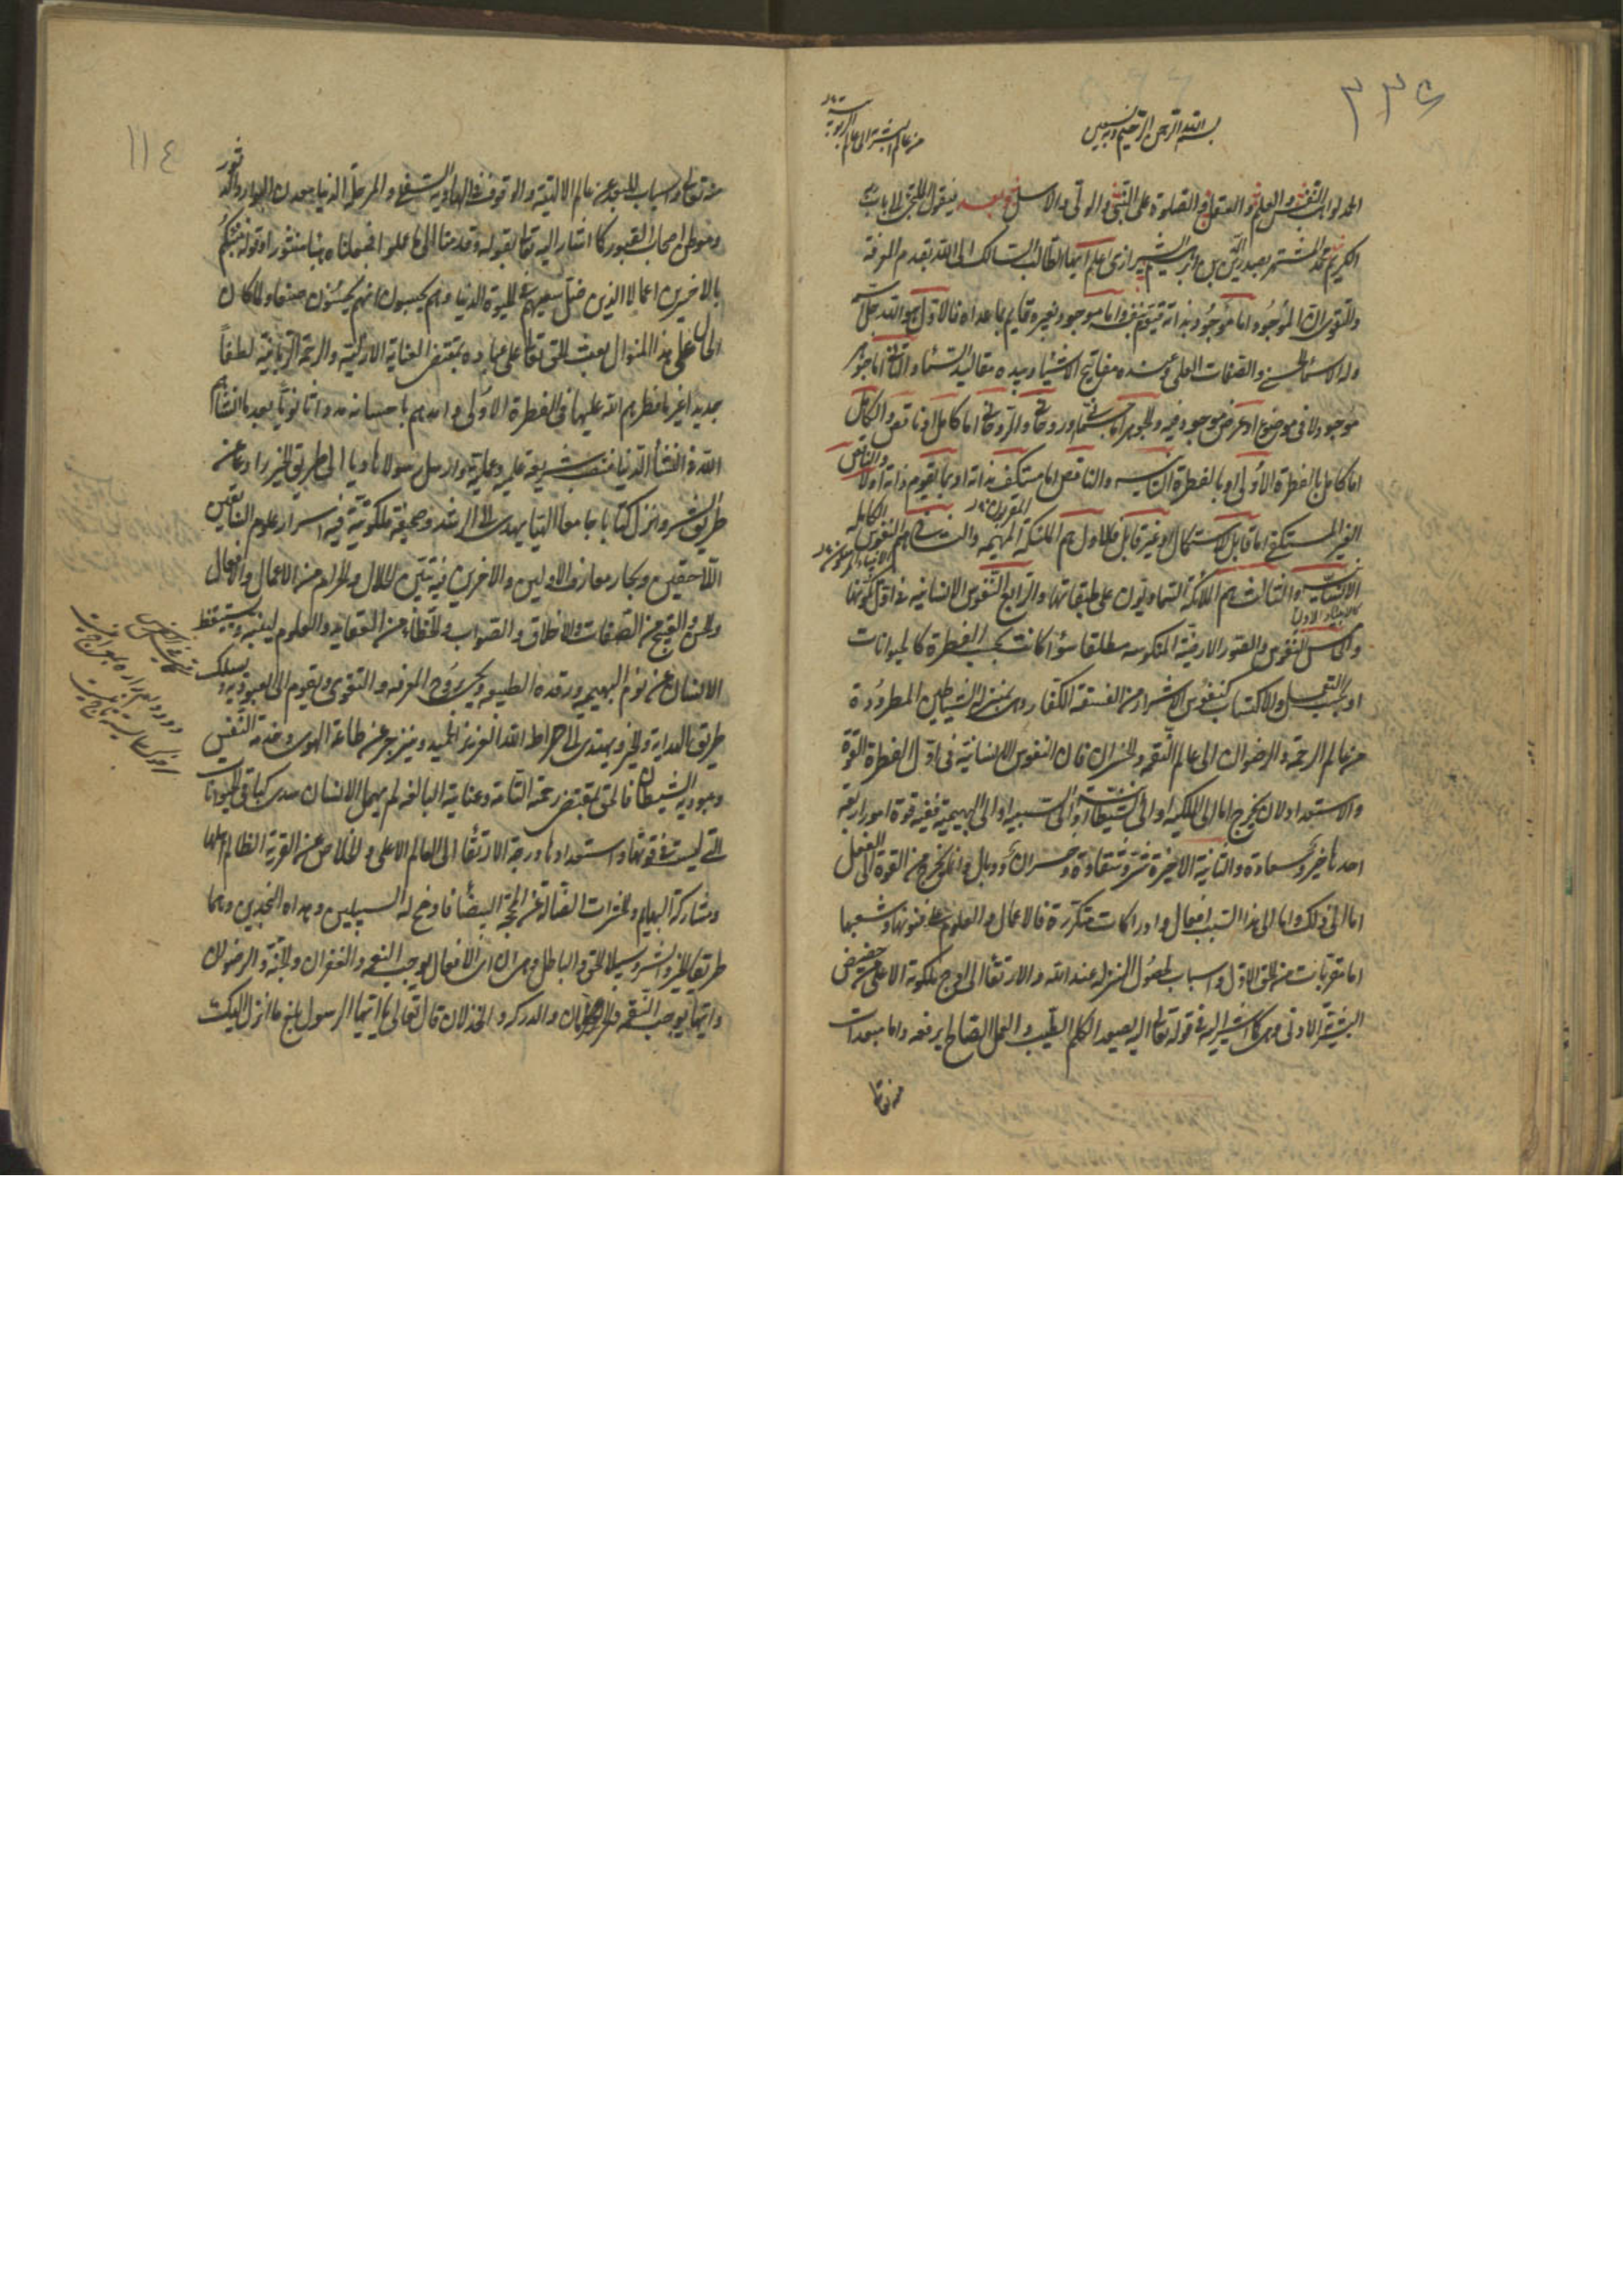 ٣٣٥
بسم الله الرحمن الرحيم وبه نستعين
من عالم البشرية الى عالم الربوبية
الحمد لواهب النفس والعلم والعقل والصلوة على النبي والولي والاسل وبعد فيقول الملتجي الى باب
الكريم محمد المشتهر بصدر الدين بن ابرهيم الشيرازي اعلم ايها الطالب السالك الى الله بقدم المعرفة
والتقوى ان الموجود اما موجود بذاته قيوم بنفسه واما موجود بغيره قايم بما عداه فالاول هو الله جل
وله الاسماء الحسنى والصفات العلى وعنده مفاتيح الاشياء وبيده مقاليد السماء والثاني اما جوهر
موجود لا في موضوع او عرض موجود فيه والجوهر اما جسماني او روحاني والروحاني اما كامل او ناقص والكامل
اما كامل بالفطرة الاولى او بالفطرة الثانيه والناقص اما مستكف بذاته او بما يقوم ذاته اولا والناقص
الغير المستكفي اما قابل للاستكمال او غير قابل فالاول هم الملئكة المهيمه والثاني هم النفوس الكامله
الانسانيه والثالث هم الملائكة السماويون على طبقاتها والرابع النفوس الانسانيه في اول تكونها
والخامس النفوس والصور الارضية المنكوسه مطلقا سواء كانت بحسب الفطرة كالحيوانات
او بحسب التعمل والاكتساب كنفوس الاشرار من الفسقه الكفار وهي بمنزلة الشياطين المطرودة
من عالم الرحمة والرضوان الى عالم النقمة والخسران فان النفوس الانسانية في اول الفطرة القوة
والاستعداد لان يخرج اما الى الملكيه او الى الشيطانية او الى السبعيه او الى البهيمية ففيه قوة امور اربعه
احدها خير وسعادة والثانية الاخيرة شر وشقاوة وخسران ووبال وانما يخرج من القوة الى الفعل
اما الى ذلك واما الى هذا السبب افعال وادراكات متكررة فالاعمال والعلوم على فنونها وشعبها
اما مقربات من الحق الاول واسباب لحصول المنزله عند الله والارتقاء الى اوج ملكوته الاعلى من حضيض
البشرية الادنى وهي كما اشير اليه في قوله تعالى اليه يصعد الكلم الطيب والعمل الصالح يرفعه واما مبعدات
منه تعالى
١١٤
منه تعالى واسباب للبعد عن عالم الالهية والوقوف في الهاوية السفلى والمرحلة الدنيا معدن البوار والثبور
وموطن اصحاب القبور كما اشار اليه تعالى بقوله وقدمنا الى ما عملوا فجعلناه هباء منثورا وقوله ننبئكم
بالاخسرين اعمالا الذين ضل سعيهم في الحيوة الدنيا وهم يحسبون انهم يحسنون صنعا ولما كان
الحال على هذا المنوال بعث الحق تعالى على عباده بمقتضى العناية الازلية والرحمة الربانية لطفا
جديدا غير ما فطرهم الله عليها في الفطرة الاولى وامدهم باحسانه مددا ثانويا بعد ما انشأهم
الله في النشأة الدنيا فبعث شريعة علمية وعملية وارسل رسولا هاديا الى طريق الخير رادعا عن
طريق الشر وانزل كتابا جامعا الهيا يهدي الى الرشد وصحيفة ملكوتية فيه اسرار علوم السابقين
اللاحقين وبحار معارف الاولين والاخرين فيه تبين الحلال والحرام من الاعمال والافعال
والحسن والقبيح من الصفات والاخلاق والصواب والخطاء من العقايد والعلوم لينتبه ويستيقظ
الانسان عن نوم البهيميه ورقدة الطبيعه ويحيى بروح المعرفه والتقوى ويقوم الى العبوديه ويسلك
طريق الهداية والخير ويهتدي الى صراط الله العزيز الحميد وينزجر عن طاعة الهوى وخدمة النفس
وعبودية الشيطان فالحق بمقتضى رحمته التامة وعنايته البالغه لم يهمل الانسان سدى كباقي الحيوانات
التي ليست في قوتها واستعدادها درجة الارتقاء الى العالم الاعلى والخلاص عن القرية الظالم اهلها
ومشاركة البهايم والحشرات الضالة عن المحجة البيضاء فاوضح له السبيلين وهداه النجدين وهما
طريقا الخير والشر وسبيلا الحق والباطل وهي ان اي الافعال يوجب النعيم والغفران والجنة والرضوان
وايها يوجب النقمة والحرمان والدركه والخذلان قال تعالى يا ايها الرسول بلغ ما انزل اليك